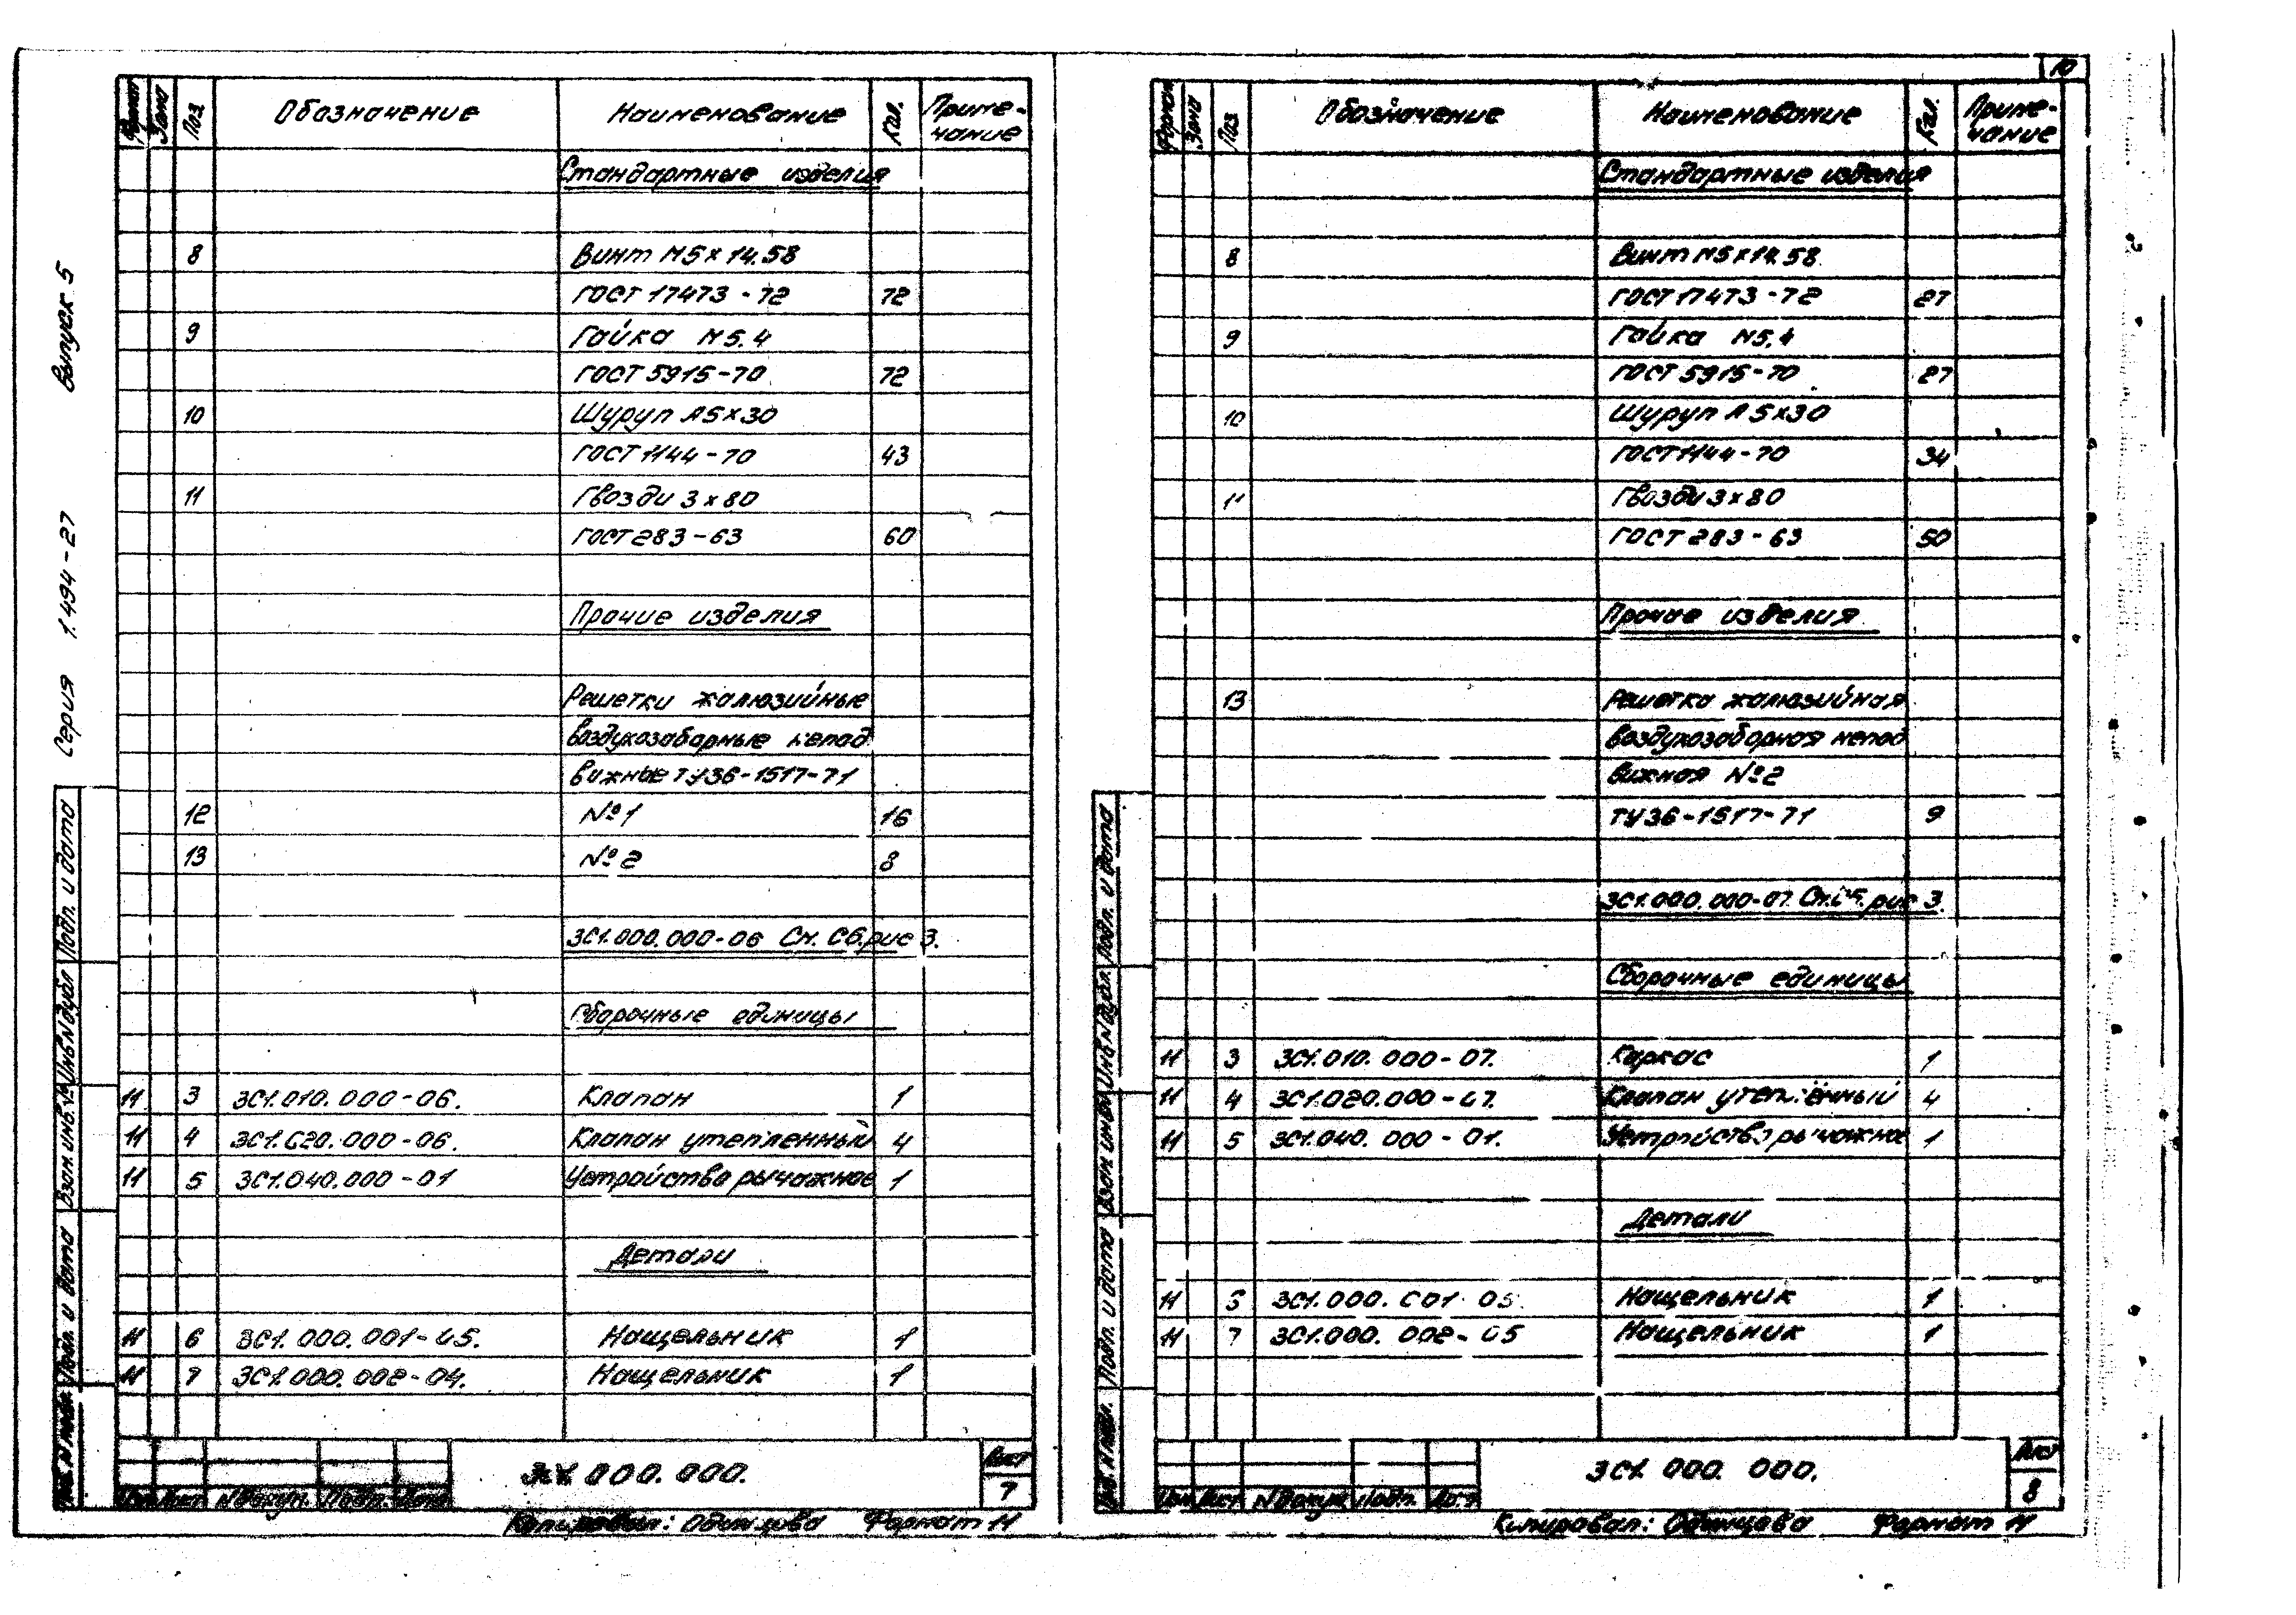 10
Выпуск 5
Серия 1.494-27
Формат Зона Поз. Обозначение Наименование Кол. Приме-
чание
Стандартные изделия
8 Винт М5х14.58
ГОСТ 17473-72 72
9 Гайка М5.4
ГОСТ 5915-70 72
10 Шуруп А5х30
ГОСТ 1144-70 43
11 Гвозди 3х80
ГОСТ 283-63 60
Прочие изделия
Решетки жалюзийные
воздухозаборные непод
вижные ТУ36-1517-71
12 №1 16
13 №2 8
3С1.000.000-06 См. Сб.рис 3.
Сборочные единицы
11 3 3С1.010.000-06. Клапан 1
11 4 3С1.020.000-06. Клапан утепленный 4
11 5 3С1.040.000-01 Устройство рычажное 1
Детали
11 6 3С1.000.001-05. Нащельник 1
11 7 3С1.000.002-04. Нащельник 1
Подп. и дата
Инв.№дубл
Взам.инв.№
Подп. и дата
Инв.№подл.
Изм Лист №докум. Подп. Дата
3С1.000.000.
Лист
7
Копировал: Одинцова Формат 11
Формат Зона Поз Обозначение Наименование Кол. Приме-
чание
Стандартные изделия
8 Винт М5х14.58
ГОСТ 17473-72 27
9 Гайка М5.4
ГОСТ 5915-70 27
10 Шуруп А5х30
ГОСТ 1144-70 34
11 Гвозди 3х80
ГОСТ 283-63 50
Прочие изделия
13 Решетка жалюзийная
воздухозаборная непод
вижная №2
ТУ36-1517-71 9
3С1.000.000-07. См.Сб.рис 3.
Сборочные единицы
11 3 3С1.010.000-07. Каркас 1
11 4 3С1.020.000-07. Клапан утеплённый 4
11 5 3С1.040.000-01. Устройство рычажное 1
Детали
11 6 3С1.000.001-05. Нащельник 1
11 7 3С1.000.002-05 Нащельник 1
Подп. и дата
Инв.№дубл.
Взам.инв.№
Подп. и дата
Инв.№подл.
Изм Лист №докум. Подп. Дата
3С1.000.000.
Лист
8
Копировал: Одинцова Формат 11